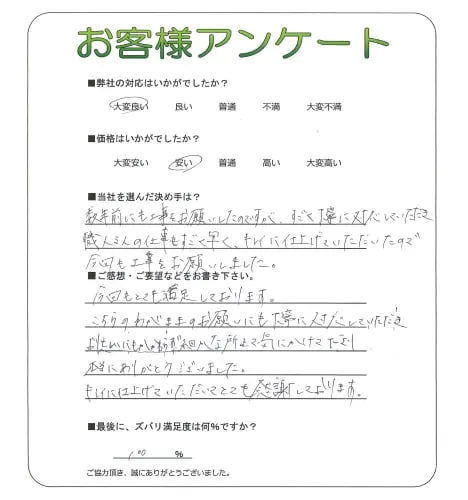 お客様アンケート
■弊社の対応はいかがでしたか?
大変良い 良い 普通 不満 大変不満
■価格はいかがでしたか?
大変安い 安い 普通 高い 大変高い
■当社を選んだ決め手は?
数年前にも工事をお願いしたのですが、すごく丁寧に対応していただき
職人さんの仕事もすごく早く、キレイに仕上げていただいたので
今回も工事をお願いしました。
■ご感想・ご要望などをお書き下さい。
今回もとても満足しております。
こちらのわがままのお願いにも丁寧に対応していただき
細かな所まで気にかけて
本当にありがとうございました。
キレイに仕上げていただいてとても感謝しております。
■最後に、ズバリ満足度は何%ですか?
100 %
ご協力頂き、誠にありがとうございました。